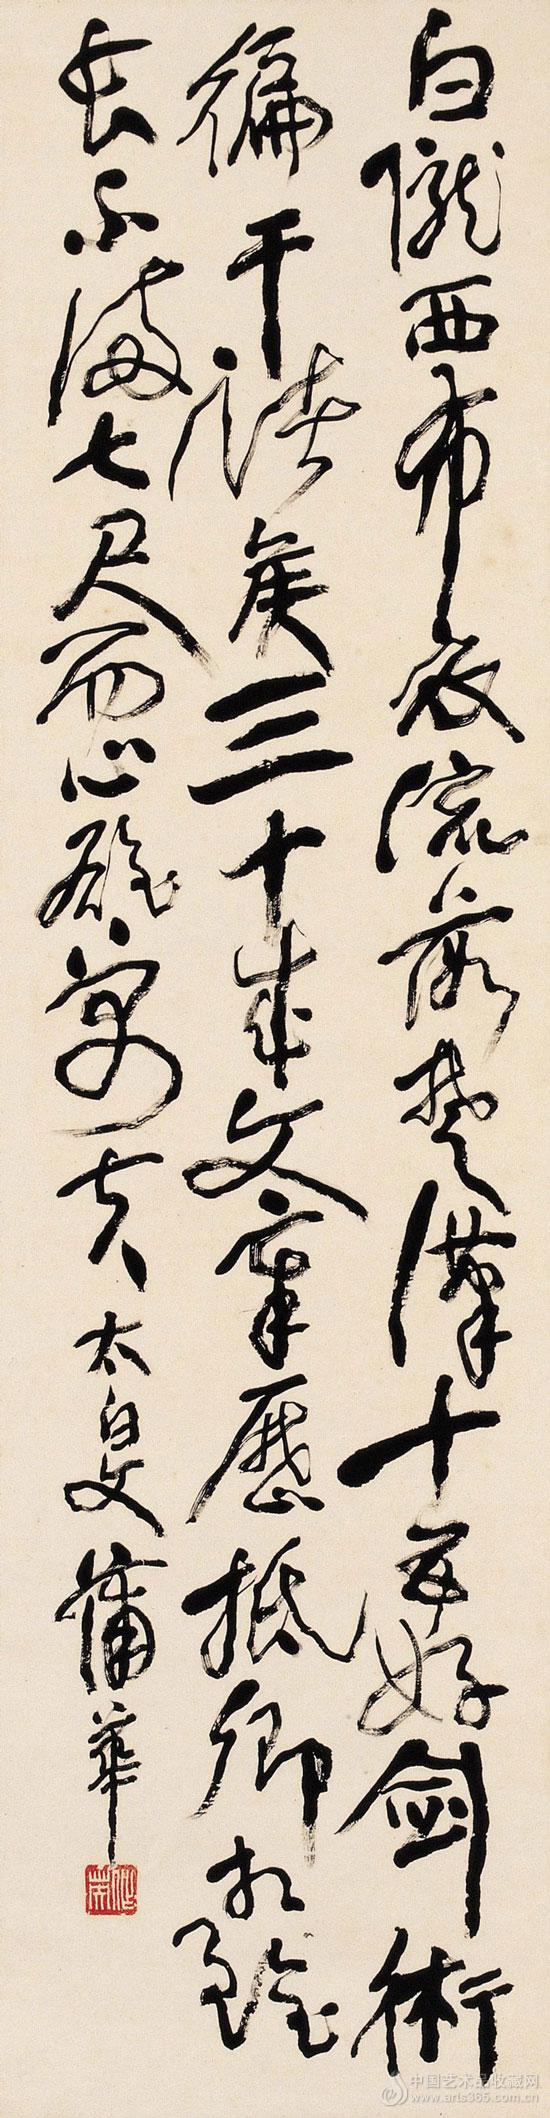 白隴西布衣流落楚漢十五好劍術
徧干諸侯三十成文章歷抵卿相雖
長不滿七尺而心雄萬夫 太白文 蒲華
中国艺术品收藏网
www.arts365.com.cn